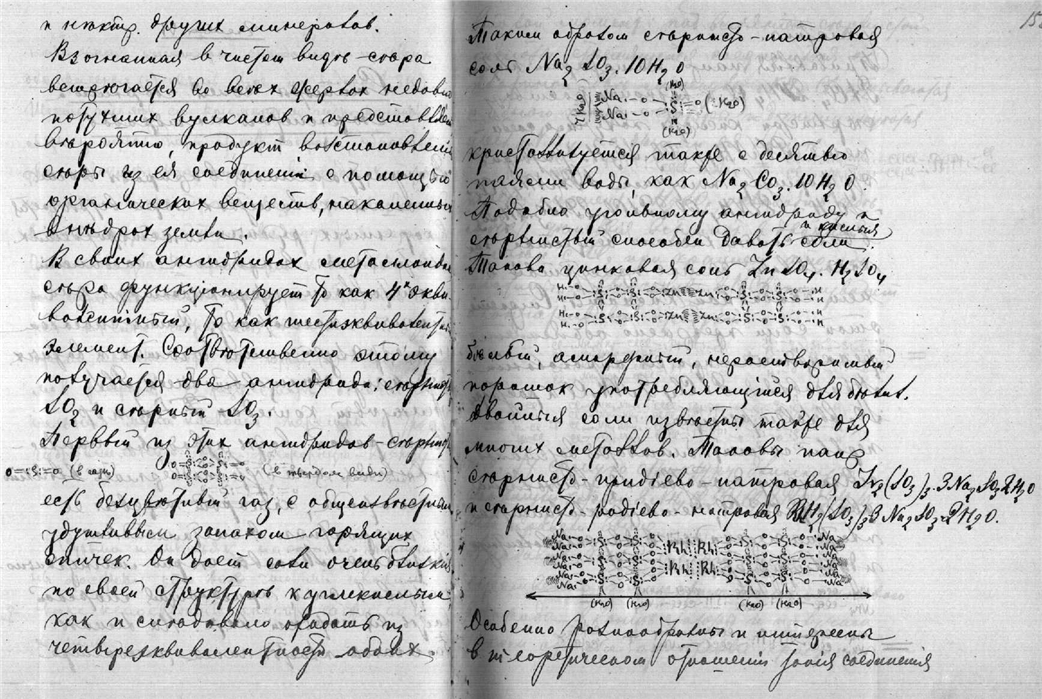 и нѣктр. других минералов.
Возогнанная в чистом видѣ сѣра
встрѣчается во всѣх жерлах недавно
потухших вулканов и представляет
вѣроятно, продукт возстановленія
сѣры из ея соединеній с помощью
органических веществ, накопленных
в нѣдрах земли.
В своих ангидридах металлоид
сѣра функціонирует то как 4х экви-
валентный, то как шестиэквивалентный
элемент. Соотвѣтственно этому
получается два ангидрида: сѣрнист.
SO2 и сѣрный SO3.
Первый из этих ангидридов - сѣрнист.
(в газѣ) (в твердом видѣ)
есть безцвѣтный газ, с общеизвѣстным
удушливым запахом горящих
спичек. Он дает соли очень близкія
по своей структурѣ к углекислым
как и слѣдовало ожидать из
четырехэквивалентности обоих.
Таким образом сѣрнисто-натровая
соль Na2SO3.10H2O
кристаллизуется также с десятью
паями воды, как Na2CO3.10H2O.
Подобно угольному ангидриду и
сѣрнистый способен давать и кислыя соли.
Такова цинковая соль ZnSO4.H2SO4
бѣлый, аморфный, нерастворимый
порошок употребляющійся для бѣлил.
Двойныя соли извѣстны также для
многих металлов. Таковы напр.
сѣрнисто-иридіево-натровая Ir2(SO3)3.3Na2SO3.2H2O
и сѣрнисто-родіево-натровая Rh2(SO3)3.3Na2SO3.2H2O.
(H2O) (H2O) (H2O) (H2O)
Особенно разнообразны и интересны
в теоретическом отношеніи соединенія